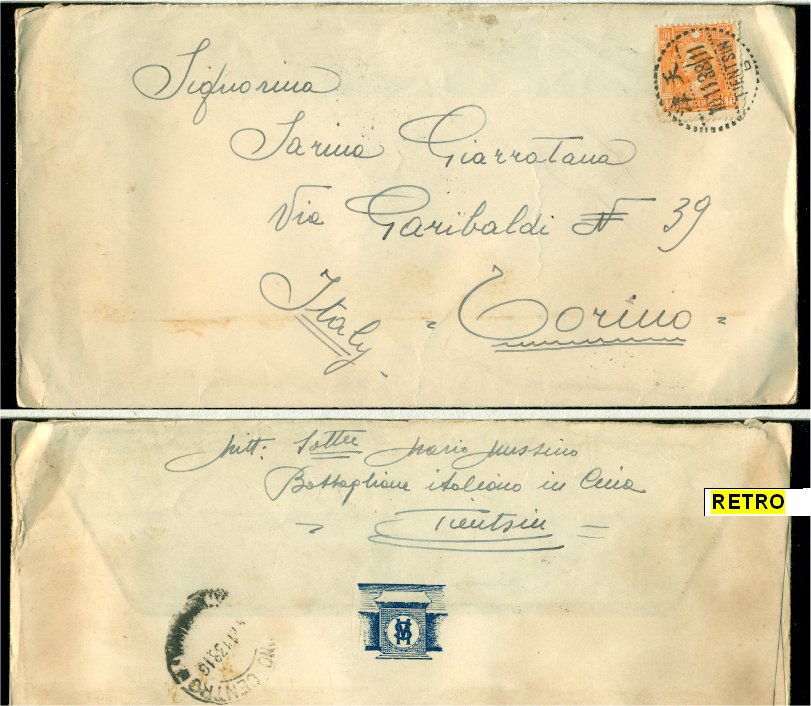 Signorina
Sarina Giarratana
Via Garibaldi N 39
Italy - Torino -
TIENTSIN
天
Mitt: Sotten Mario Mussino
Battaglione italiano in Cina
Tientsin
RETRO
CENTRO